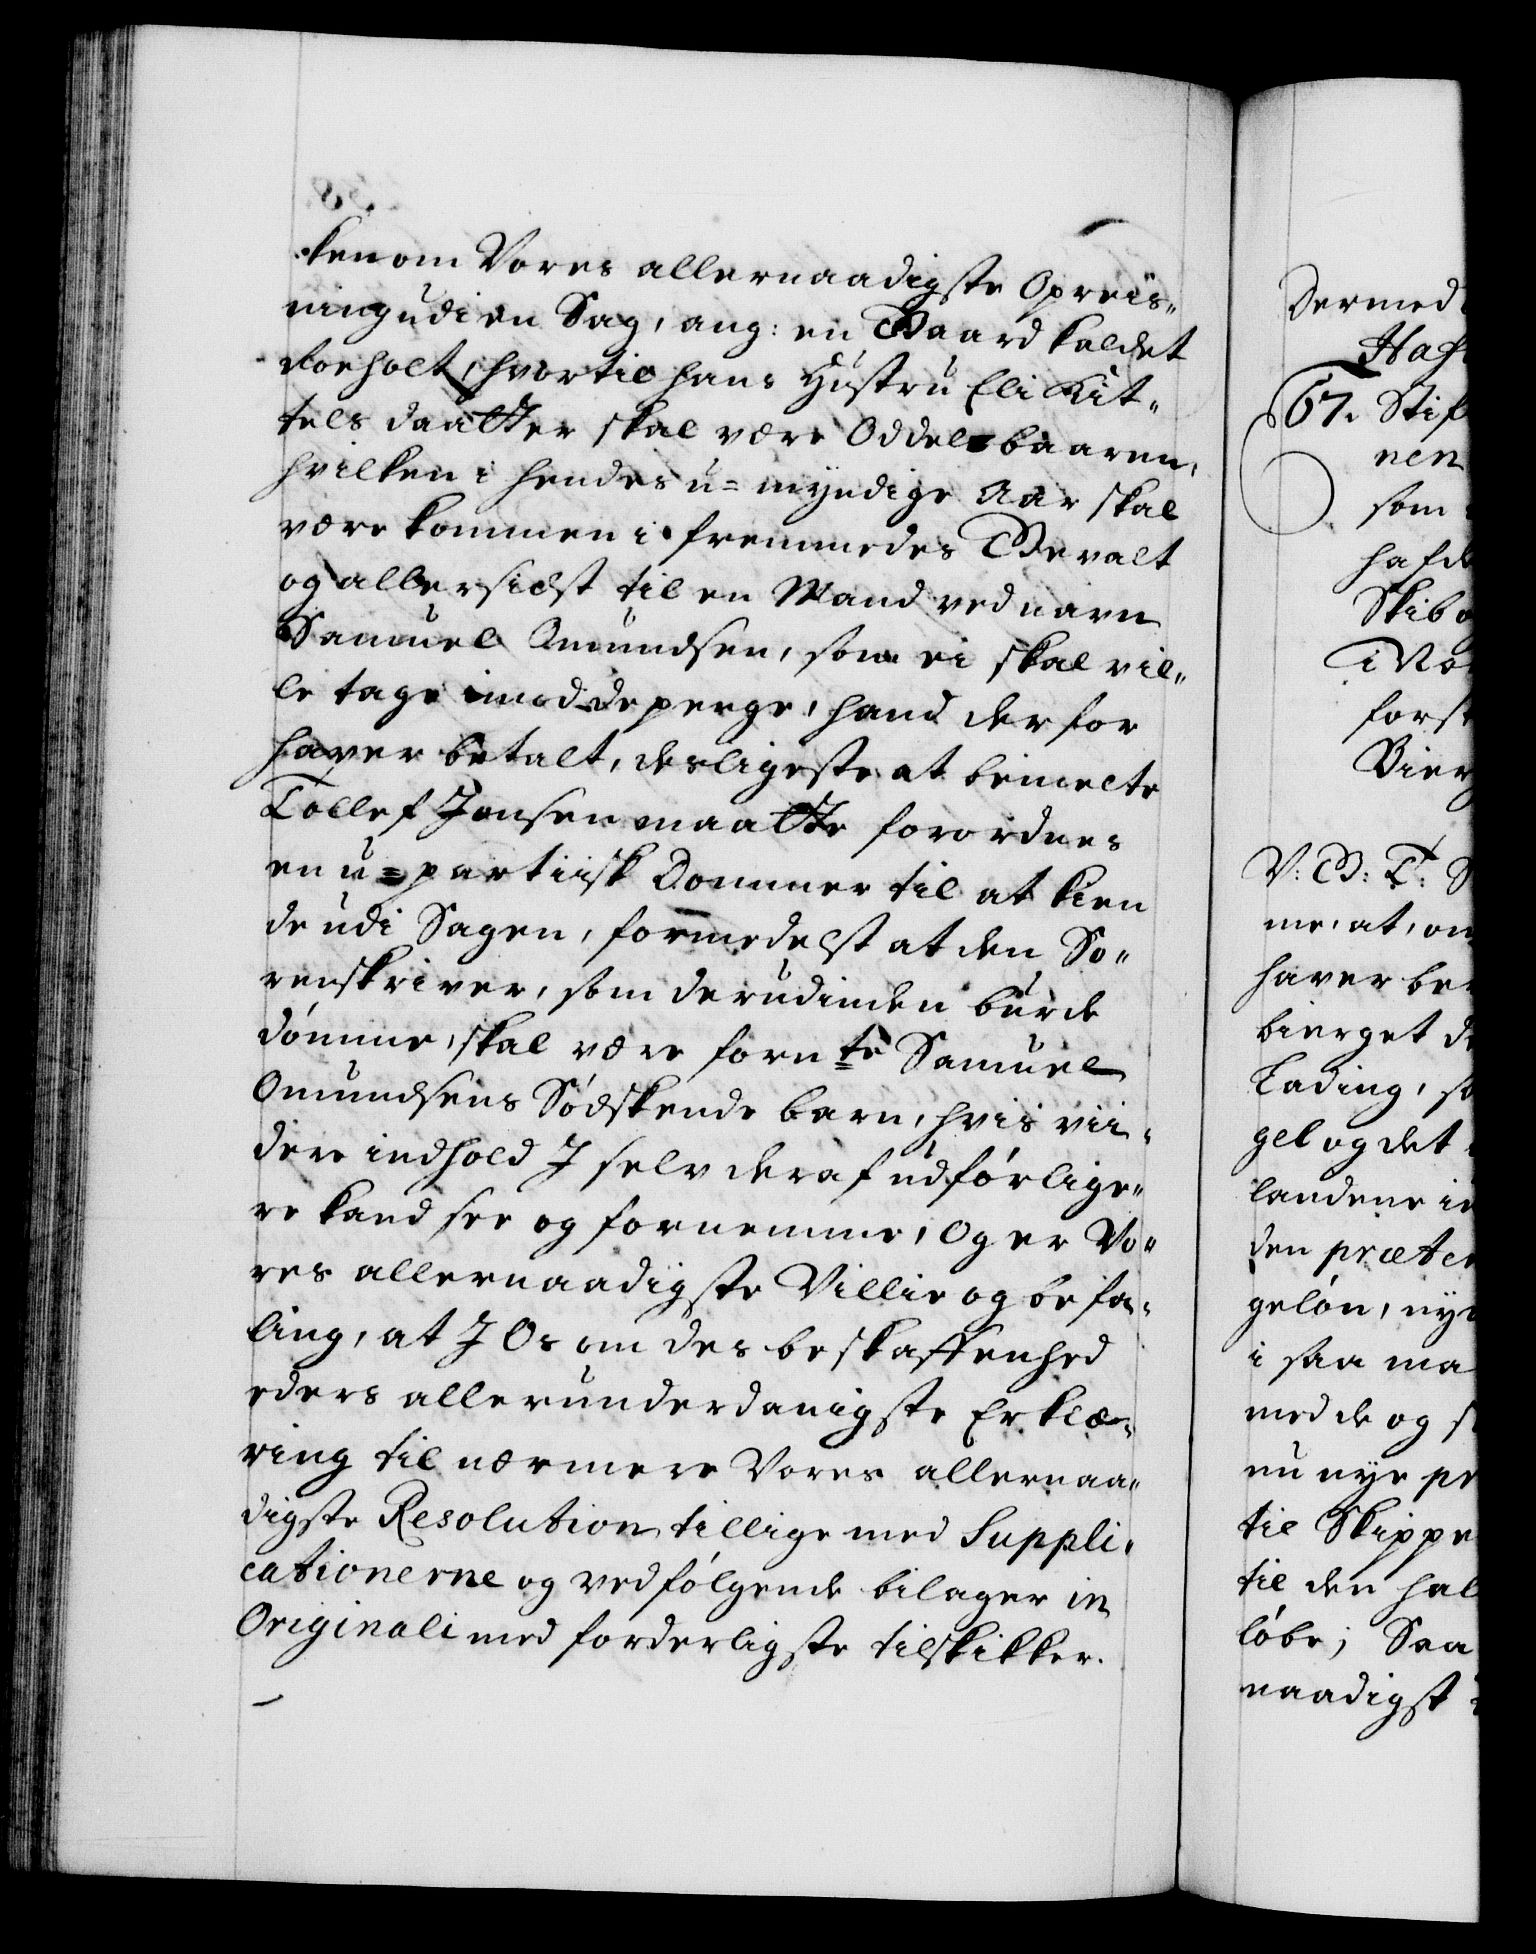 ken om Vores allernaadigste Opreis-
ning udi en Sag, ang: en Gaard kaldet
Roeholt, hvortil hans Hustru Eli Kit-
tels daatter skal være Oddelsbaaren,
hvilken i hendes u-myndige Aar skal
være kommen i fremmedes Gevalt
og allersidst til en Mand ved navn
Samuel Omundsen, som ei skal vil-
le tage imod de penge, hand derfor
haver betalt, desligeste at bemelte
Tollef Jonsen maatte forordnes
en u-partiisk Dommer til at kien
de udi Sagen, formedelst at den So-
renskriver, som derudinden burde
dómme, skal være forn te Samuel
Omundsens Södskende barn, hvis vii-
dere indhold I selv deraf udförlige-
re kand see og fornemme, Og er Vo-
res allernaadigste Villie og befa-
ling, at I Os om des beskaffenhed
eders allerunderdanigste Erklæ-
ring til nærmere Vores allernaa-
digste Resolution tillige med Suppli-
cationerne og vedfölgende bilager in
Originali med forderligste tilskikker.
Dermed
Haf
67. Stif
nen
som
hafde
Skib o
i No
forst
Bierg
V: G: T: S
me, at, om
haver be
bierget d
Lading, so
gel og det
landene i
den præte
gelön, ny
i saa ma
med de og s
nu nye pr
til Skippe
til den hal
löbe; Saa
naadigst